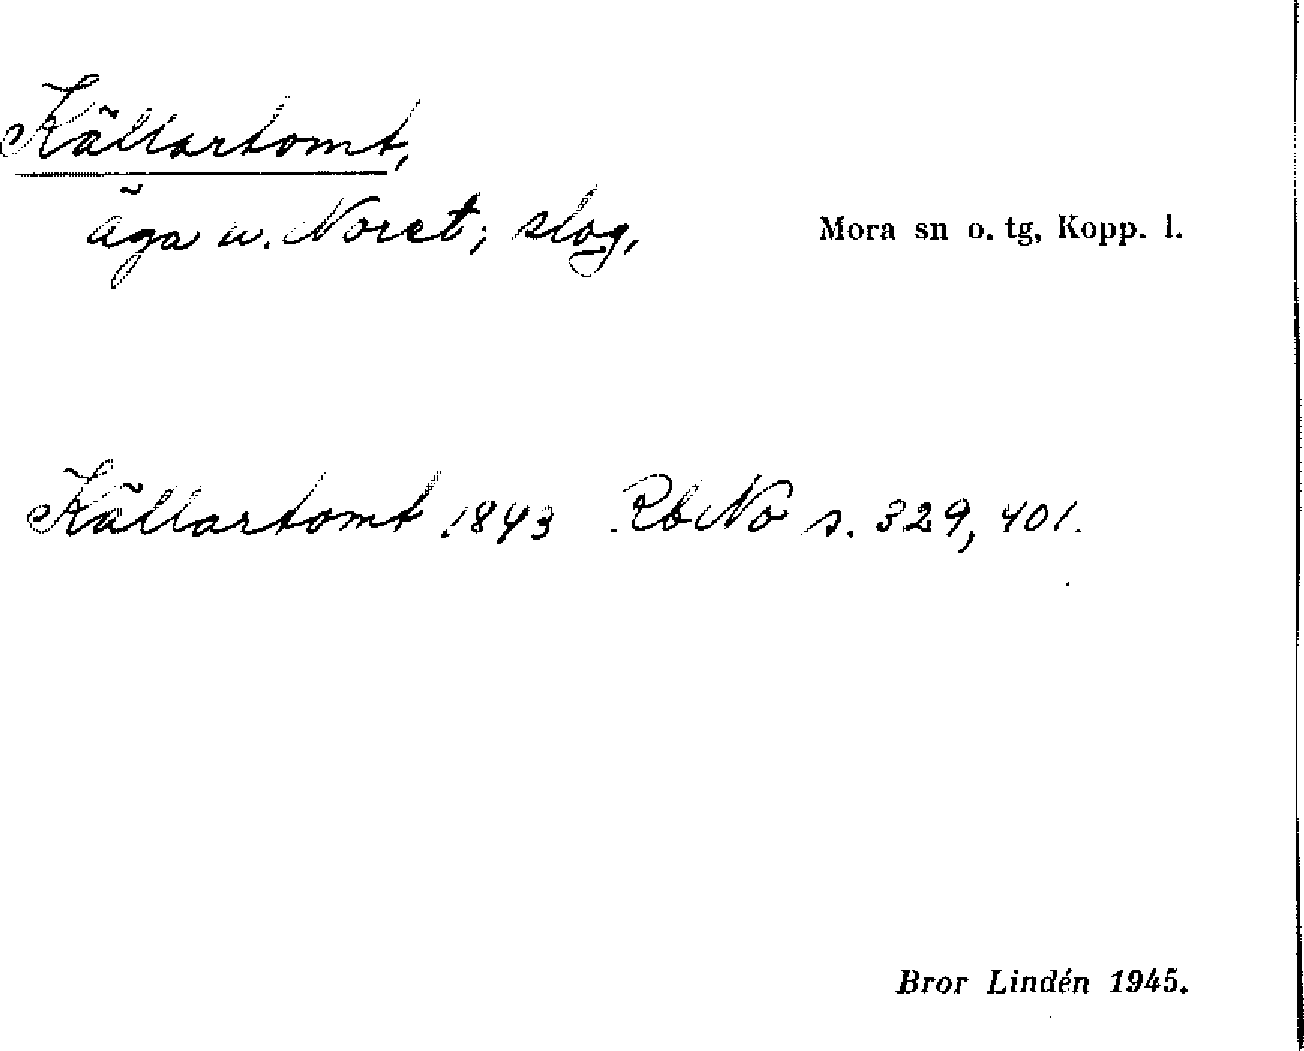 Källartomt,
äga u. Noret; slog, Mora sn o. tg, Kopp. l.
Källartomt 1843 RbNo s. 329, 401.
Bror Lindén 1945.